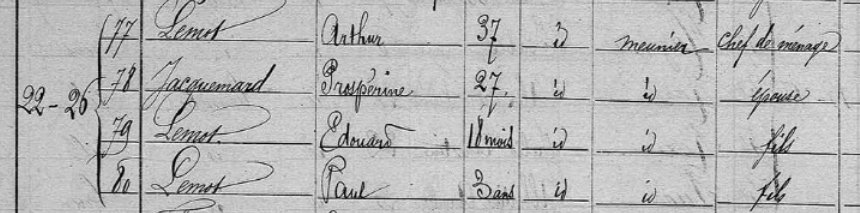 77 Lemot Arthur 37 id meunier chef de ménage
78 Jacquemard Prospérine 27 id id épouse
22-26
79 Lemot Edouard 18 mois id id fils
80 Lemot Paul 3 ans id id fils